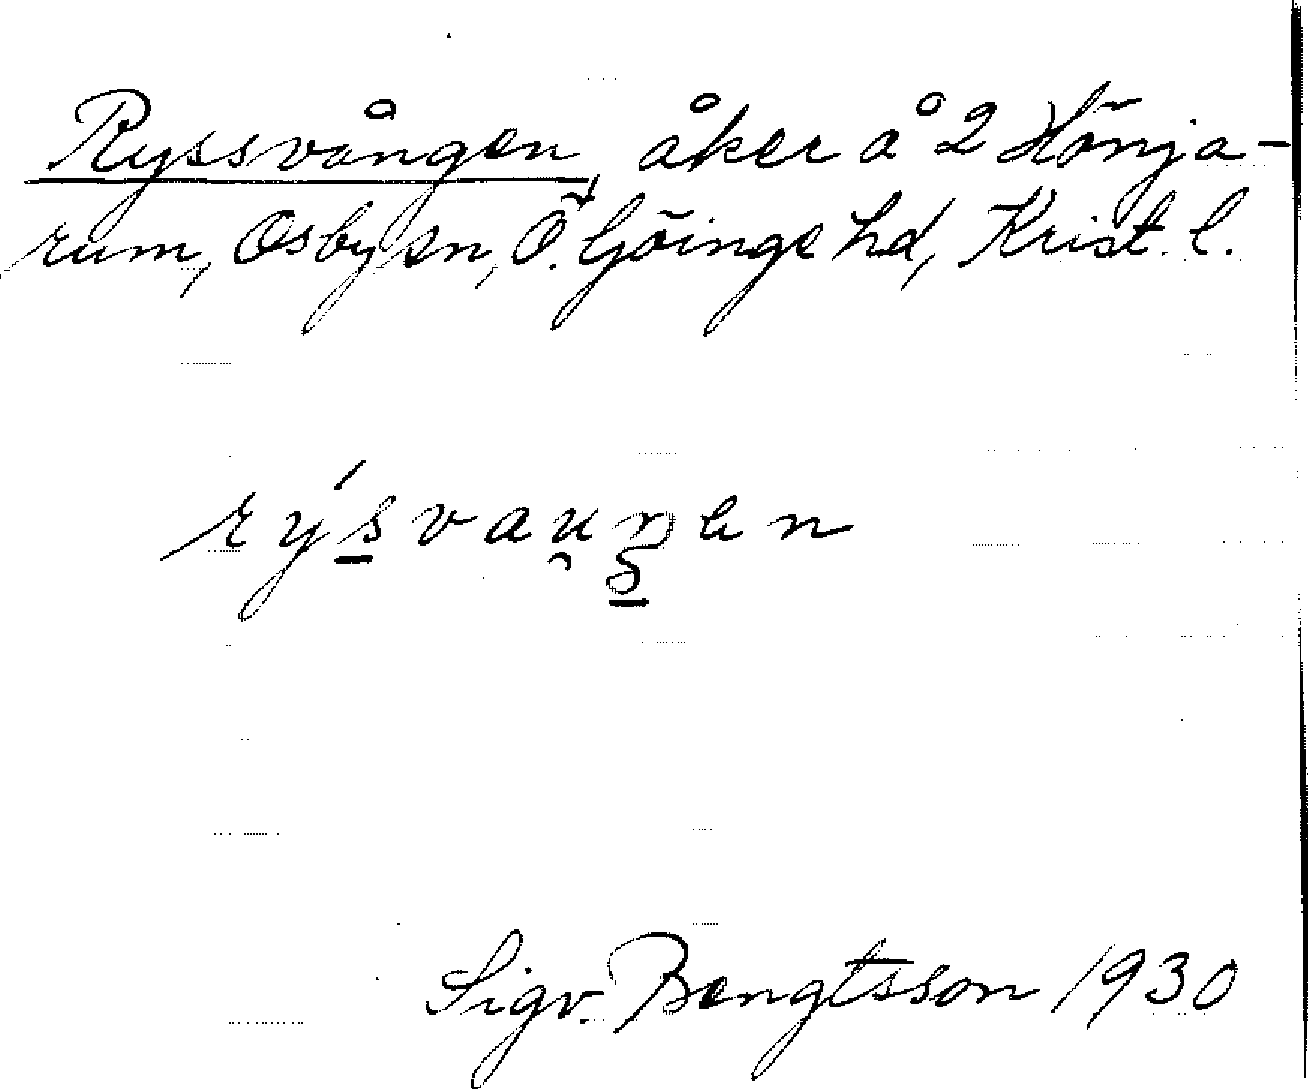 Ryssvången, åker å 2 Hönja-
rum, Osby sn, Ö. Göinge hd, Krist. l.
rýsvau̯ŋen
Sigv. Bengtsson 1930